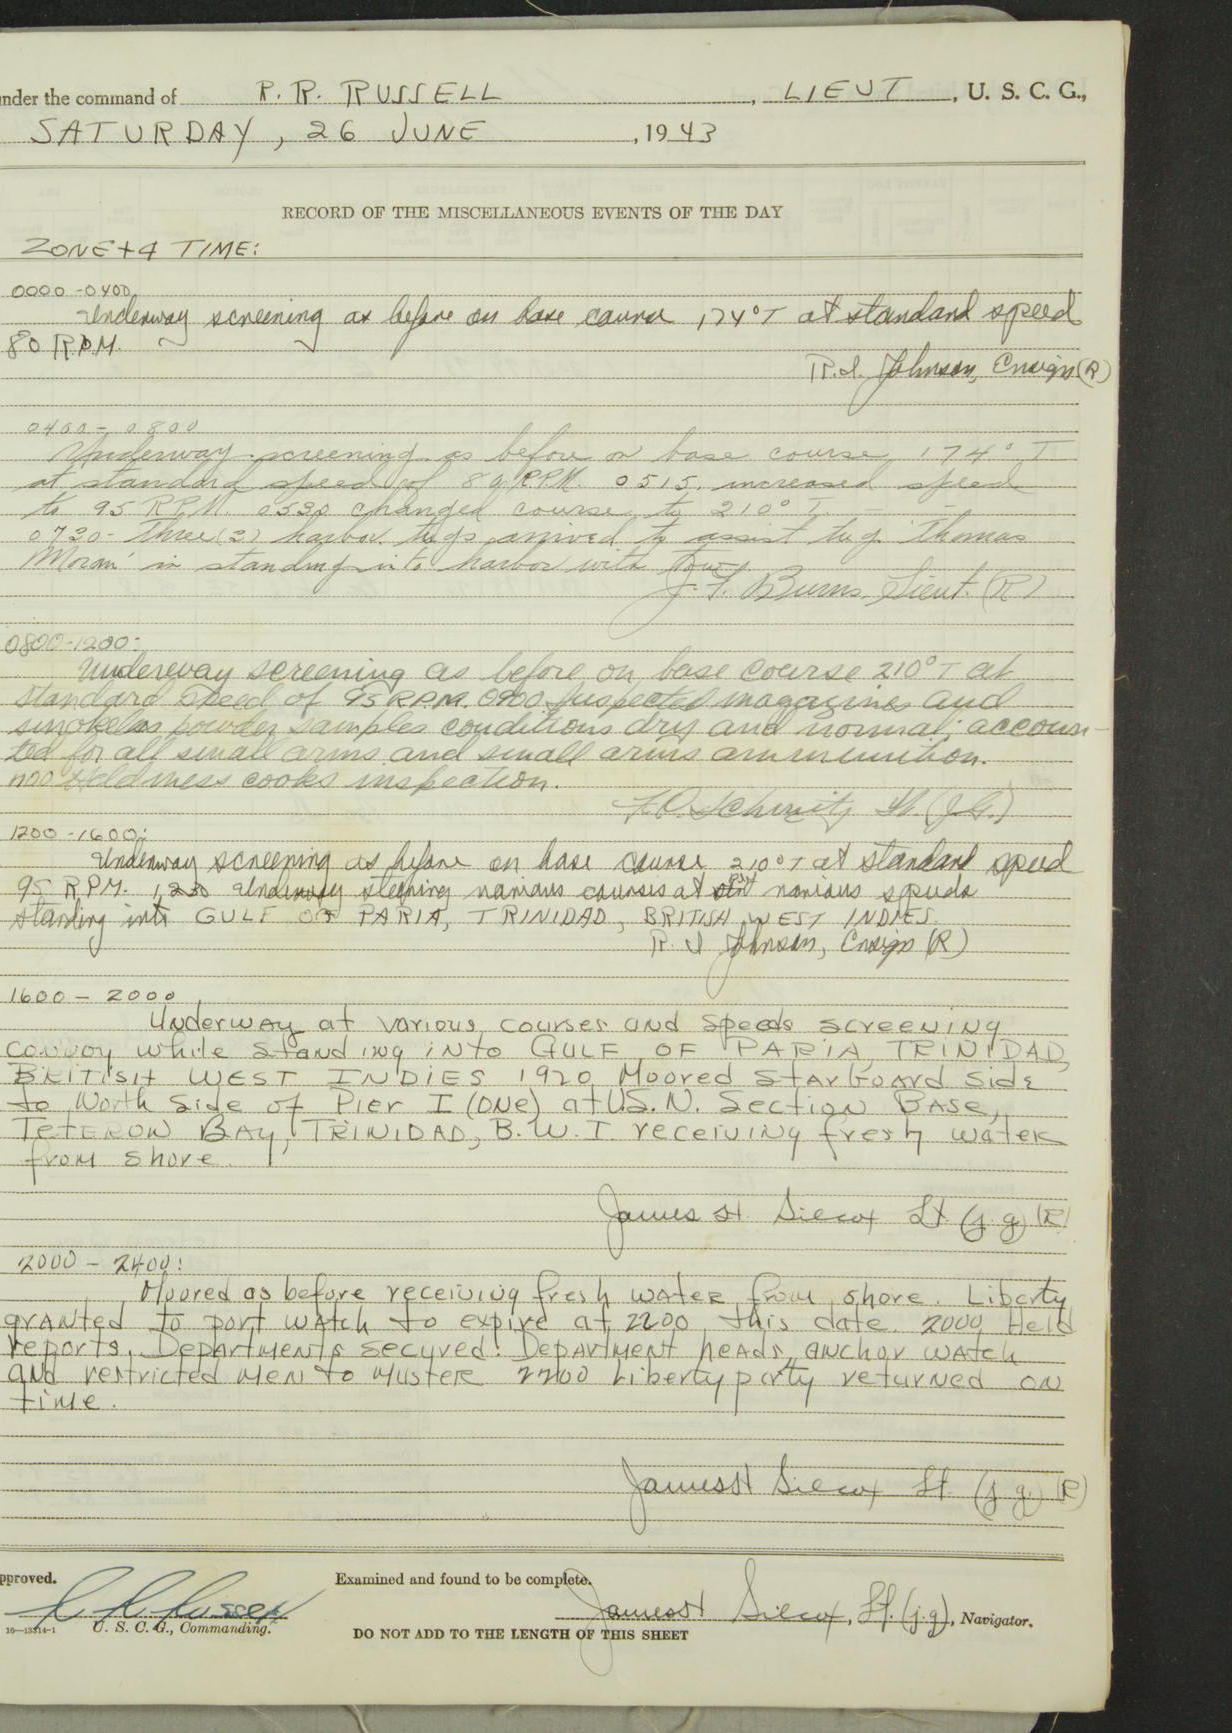 nder the command of R. R. RUSSELL, LIEUT, U. S. C. G.,
SATURDAY, 26 JUNE, 1943
RECORD OF THE MISCELLANEOUS EVENTS OF THE DAY
ZONE +4 TIME:
0000 - 0400
Underway screening as before on base course 174° T at standard speed
80 R.P.M.
R. I. Johnson, Ensign (R)
0400 - 0800
Underway screening as before on base course 174° T
at standard speed of 80 RPM. 0515, increased speed
to 95 RPM. 0530 changed course to 210° T.
0730 - three (3) harbor tugs arrived to assist tug Thomas
Moran in standing into harbor with tow.
J. F. Burns, Lieut. (R)
0800 - 1200:
Underway screening as before on base course 210° T at
standard speed of 95 RPM. 0900 Inspected magazines and
smokeless powder samples conditions dry and normal; accoun-
ted for all small arms and small arms ammunition.
1100 Held mess cooks inspection.
Schmitz Lt. (J.G.)
1200 - 1600:
Underway screening as before on base course 210° T at standard speed
95 R.P.M. 1230 Underway steering various courses at various speeds
standing into GULF OF PARIA, TRINIDAD, BRITISH WEST INDIES.
R. I. Johnson, Ensign (R)
1600 - 2000
Underway at various courses and speeds screening
convoy while standing into GULF OF PARIA, TRINIDAD,
BRITISH WEST INDIES 1920 Moored starboard side
to North side of Pier I (ONE) at U.S.N. Section BASE,
TETERON BAY, TRINIDAD, B.W.I. receiving fresh water
from shore.
James H. Silcox Lt (j.g) (R)
2000 - 2400:
Moored as before receiving fresh water from shore. Liberty
granted to port watch to expire at 2200 this date. 2000 Held
reports, Departments secured. Department heads, anchor watch
and restricted men to muster 2200 Liberty party returned on
time.
James H Silcox Lt. (j.g.) (R)
pproved.
R R Russell
U. S. C. G., Commanding.
16—13314-1
Examined and found to be complete.
James H Silcox, Lt. (j.g), Navigator.
DO NOT ADD TO THE LENGTH OF THIS SHEET